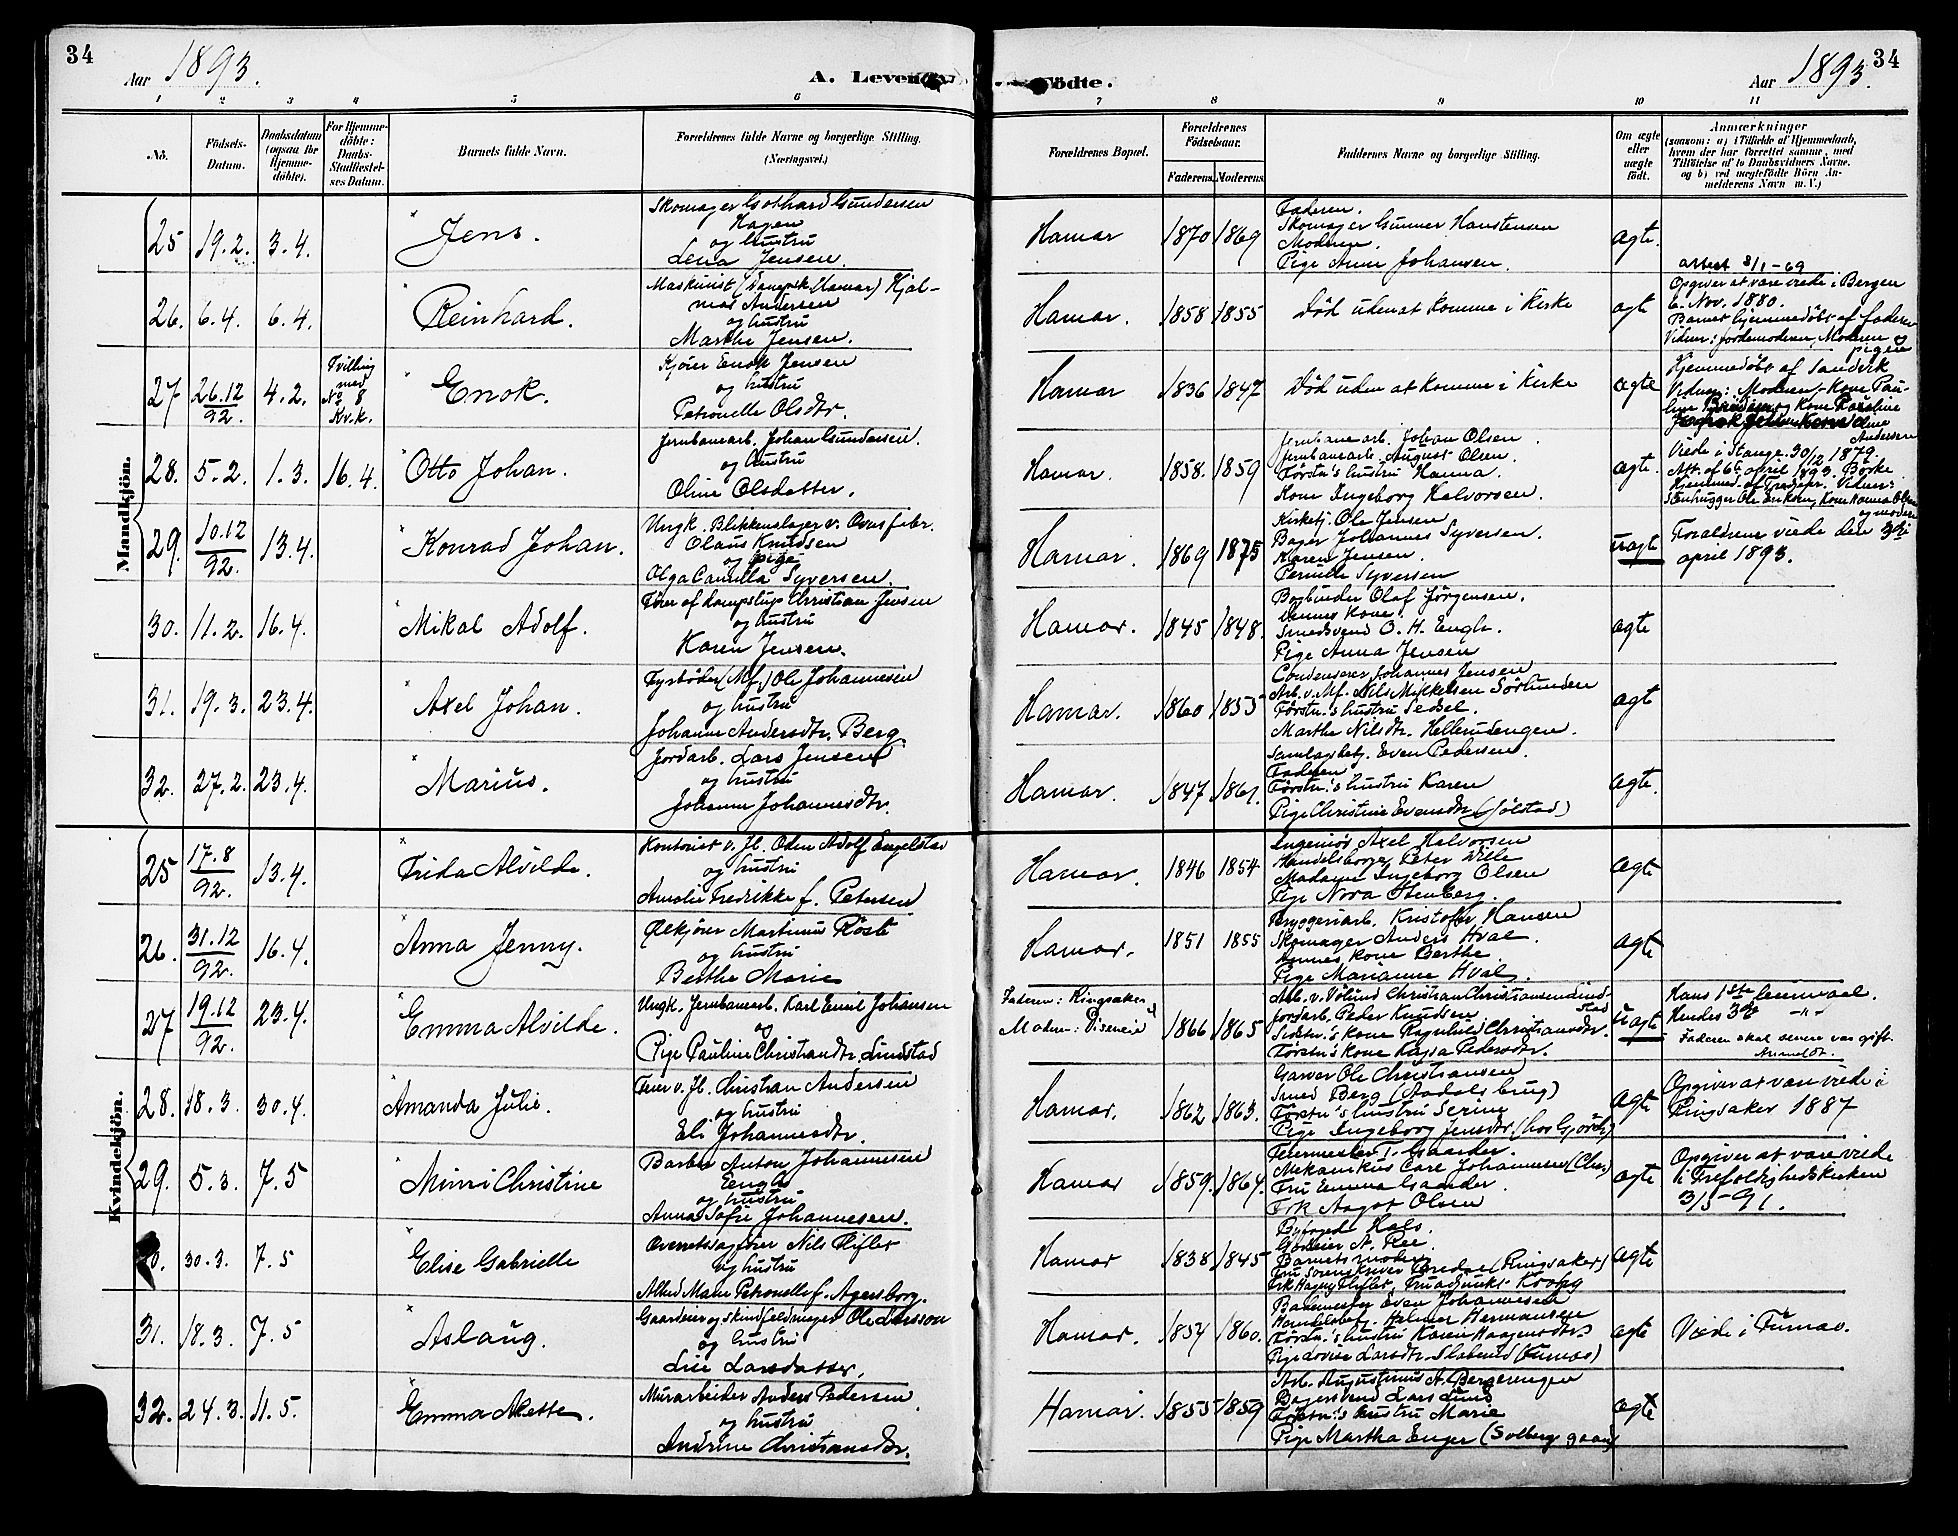 34
Aar 1893.
A. Levende
Födte.
Aar 1893.
34
1 2 3 4 5 6 7 8 9 10 11
No.
Födsels-Datum.
Daabsdatum (ogsaa for Hjemme-döbte).
For Hjemme-döbte: Daabs-Stadfæstel-ses Datum.
Barnets fulde Navn.
Forældrenes fulde Navne og borgerlige Stilling. (Næringsvei.)
Forældrenes Bopæl.
Forældrenes Födselsaar.
Faderens.
Moderens.
Faddernes Navne og borgerlige Stilling.
Om ægte eller uægte födt.
Anmærkninger
(saasom: a) i Tilfælde af Hjemmedaab, hvem der har forrettet samme, med Tilföielse af to Daabsvidners Navne, og b) ved uægtefödte Börn An-melderens Navn m. V.)
Mandkjön.
25 19.2. 3.4. Jens.
Skomager Gothard Gundersen
Hagen
og hustru
Lena Jensen.
Hamar 1870 1869
Faderen.
Skomager Gunner Hanstensen
Moderen.
Pige Anne Johansen.
ægte.
26. 6.4. 6.4. Reinhard.
Maskinist (Dampsk. Hamar) Hjal-
mar Andersen
og hustru
Marthe Jensen.
Hamar. 1858 1855
Död uden at komme i Kirke
ægt
attest 8/1-69
Opgiver at være viede i Bergen
6. Nov. 1880.
Barnet hjemmedøbt af faderen
Vidner: Jordemoderen, Moderen og
pigen
27 26.12/92. 4.2.
Tvilling
med
No 8
Kv.k.
Enok.
Kjörer Enok Jensen
og hustru
Petronelle Olsdtr.
Hamar 1836 1847
Död uden at komme i Kirke
ægte
Hjemmedøbt af Sandvik
Vidner: Moderen, Kone Pau-
line
28. 5.2. 1.3. 16.4. Otto Johan.
Jernbanearb. Johan Gundersen.
og hustru
Oline Olsdatter.
Hamar. 1858. 1859
Jernbanearb. Johan Olsen
Jernbanearb. August Olsen.
Førstn.'s hustru Hanna.
Kone Ingeborg Halvorsen.
ægte.
Viede i Stange 30/12 1879.
Att. af 6te april 1893. Börke
29. 10.12/92. 13.4. Konrad Johan.
Ungk. Blikkenslager v. Ovnsfabr.
Olaus Knudsen
og pige
Olga Camilla Syversen.
Hamar. 1869 1875
Kirketj. Ole Jensen
Bager Johannes Syversen.
Karen Jensen.
Pernille Syversen
uægte
Forældrene viede den 3die
april 1893.
30. 11.2. 16.4. Mikal Adolf.
Fører af Dampslup Christian Jensen
og hustru
Karen Jensen.
Hamar. 1845 1848.
Bogbinder Olaf Jörgensen.
Dennes Kone.
Smedsvend O. H. Engh.
Pige Anna Jensen
ægte
31. 19.3. 23.4. Axel Johan.
Fyrböder (Mf.) Ole Johannesen
og hustru
Johanne Andersdtr. Berg
Hamar. 1860 1853
Condenserer Johannes Jensen
Arb. v. Mf. Nils Mikkelsen Sörlunden
Førstn.'s hustru Sedsel.
Marthe Nilsdtr. Hellerudengen.
ægt
32. 27.2. 23.4. Marius.
Jordarb. Lars Jensen
og hustru
Johanne Johannesdtr.
Hamar. 1847 1861.
Samlagsbetj. Even Pedersen.
Faderen
Førstn.'s hustru Karen
Pige Christine Evensdtr (Jölstad)
ægte.
Kvindekjön.
25 17.8/92. 13.4. Frida Alvilde.
Kontorist v. Jb. Oden Adolf Engelstad
og hustru
Amalie Fredrikke f. Petersen
Hamar. 1846 1854
Ingeniör Axel Halvorsen
Handelsborger Peter Wille
Madame Ingeborg Olsen
Pige Nora Stenberg.
ægte
26. 31.12/92. 16.4. Anna Jenny.
Ölkjörer Martinus Röste
og hustru
Berthe Marie
Hamar. 1851 1855
Bryggeriarb. Kristoffer Hansen
Skomager Anders Hval.
Dennes kone Berthe.
Pige Marianne Hval.
ægte
27 19.12/92. 23.4. Emma Alvilde.
Ungk. Jernbanearb. Karl Emil Johansen
og
Pige Pauline Christiansdtr. Lundstad
Faderen: Ringsaker
Moder:
1866 1865
Arb. v. Vølund Christian Christiansen Lund-
stad
Jordarb. Peder Knudsen
Sidstn.'s kone Ragnhild Christiansdtr.
Førstn's Kone Kajsa Pedersdtr.
uægte
Hans 1ste leiermaal.
Hendes 3die -"-
Faderen skal senere være gift.
28. 18.3. 30.4. Amanda Julie.
Feier v. Jb. Christian Andersen
og hustru
Eli Johannesdtr.
Hamar. 1862 1863.
Garver Ole Christiansen
Smed Berg (Aadalsbrug)
Førstn's hustru Serine
Pige Ingeborg Jensdtr.
ægte
Opgiver at være viede i
Ringsaker 1887
29. 5.3. 7.5 Mimi Christine
Barber Anton Johannesen
Engh
og hustru
Anna Sofie Johannesen.
Hamar 1859. 1864.
Feiermester T. Gaarder.
Mekanikus Carl Johannesen (Chr.)
Fru Emma Gaarder.
Frk Aagot Olsen
ægte
Opgiver at være viede
i Trefoldighedskirken
3/5-91.
30. 30.3. 7.5 Elise Gabrielle
Overretssagfører Nils Fliflet
og hustru
Alhed Marie Petronelle f. Agersborg.
Hamar 1838 1845
Byfoged Hals.
Gaardeier N. Ree.
Barnets moder
Fru Sorenskriver Bredse (Ringsaker)
Frk Hagny Fliflet,
ægte
31. 18.3. 7.5 Aslaug.
Gaardeier og skindfeldmager Ole Larsson
og hustru
Lise Larsdatter.
Hamar. 1854 1860.
Banemester Even Johannesen
Handelsbetj. Helmer Hermansen
Førstn.'s hustru Karen Haagensdtr.
Pige Lovise Larsdtr. Slabund (Furnæs)
ægte
Viede i Furnæs.
32. 24.3. 11.5. Emma Mette.
Murarbeider Anders Pedersen
og hustru
Andrine Christiansdtr.
Hamar. 1855 1859
Arb. Augustinus A. Bergeengen
Bagersvend Lars Lund
Førstn.'s hustru Marie
Pige Martha Enger (Solberg gaard)
ægte